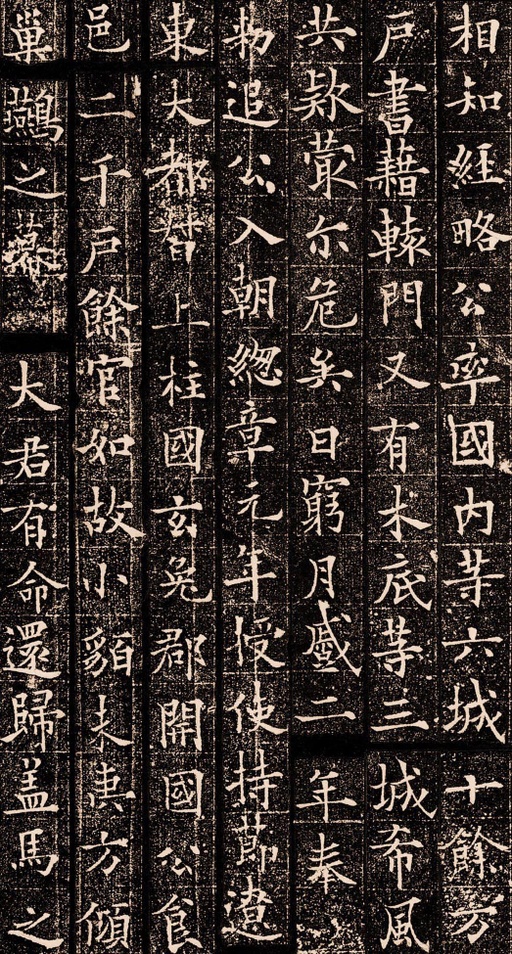 相知經略公率國内等六城十餘万
戶書藉轅門又有木底等三城希風
共款蕞尓危矣日窮月蹙二年奉
勑追公入朝緫章元年授使持節遼
東大都督上柱國玄兔郡開國公食
邑二千戶餘官如故小貊未夷方傾
巢鷰之幕大君有命還歸盖馬之